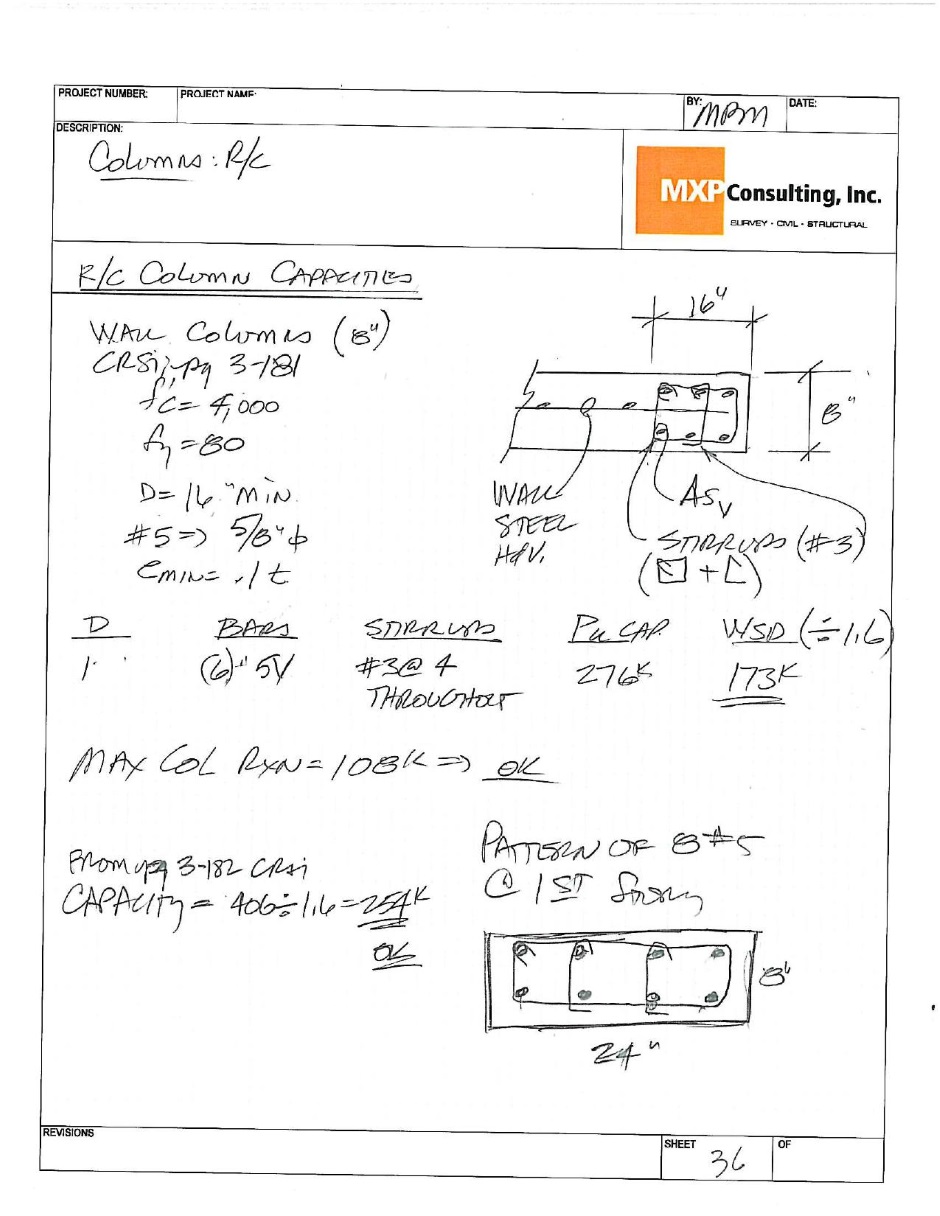 PROJECT NUMBER:
PROJECT NAME:
BY: MPM
DATE:
DESCRIPTION:
Columns: R/C
MXP Consulting, Inc.
SURVEY - CIVIL - STRUCTURAL
R/C COLUMN CAPACITIES
WALL COLUMNS (8")
CRSI, pg 3-181
f'c = 4,000
fy = 80
D = 16" MIN.
#5 => 5/8" ϕ
emin = .1 t
16"
8"
WALL
STEEL
H&V.
Asv
STIRRUPS (#3)
( + )
D BARS STIRRUPS Pu CAP. WSD (÷1.6)
1 (6)-#5V #3@4 276K 173K
THROUGHOUT
MAX COL RXN = 108K => OK
FROM pg 3-182 CRSI
CAPACITY = 406÷1.6 = 254K
OK
PATTERN OF 8#5
@ 1ST Story
8"
24"
REVISIONS
SHEET 36
OF